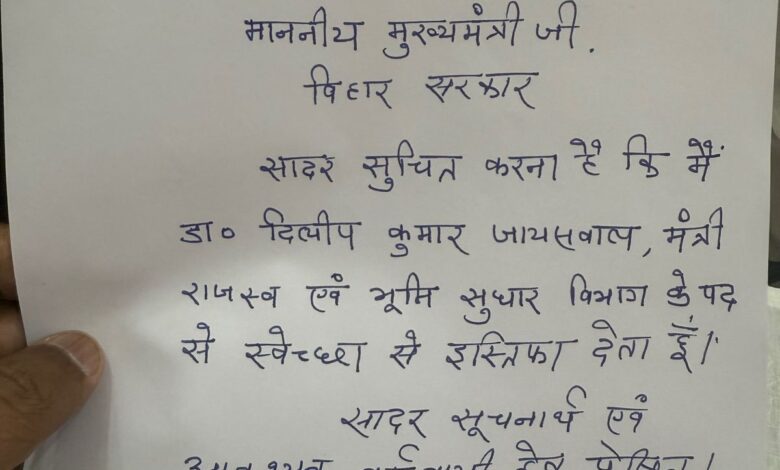 माननीय मुख्यमंत्री जी.
बिहार सरकार
सादर सुचित करना है कि मैं
डा० दिलीप कुमार जायसवाल, मंत्री
राजस्व एवं भूमि सुधार विभाग के पद
से स्वेच्छा से इस्तिफा देता हूँ।
सादर सूचनार्थ एवं
आवश्यक कार्यवाही हेतु प्रेषित।